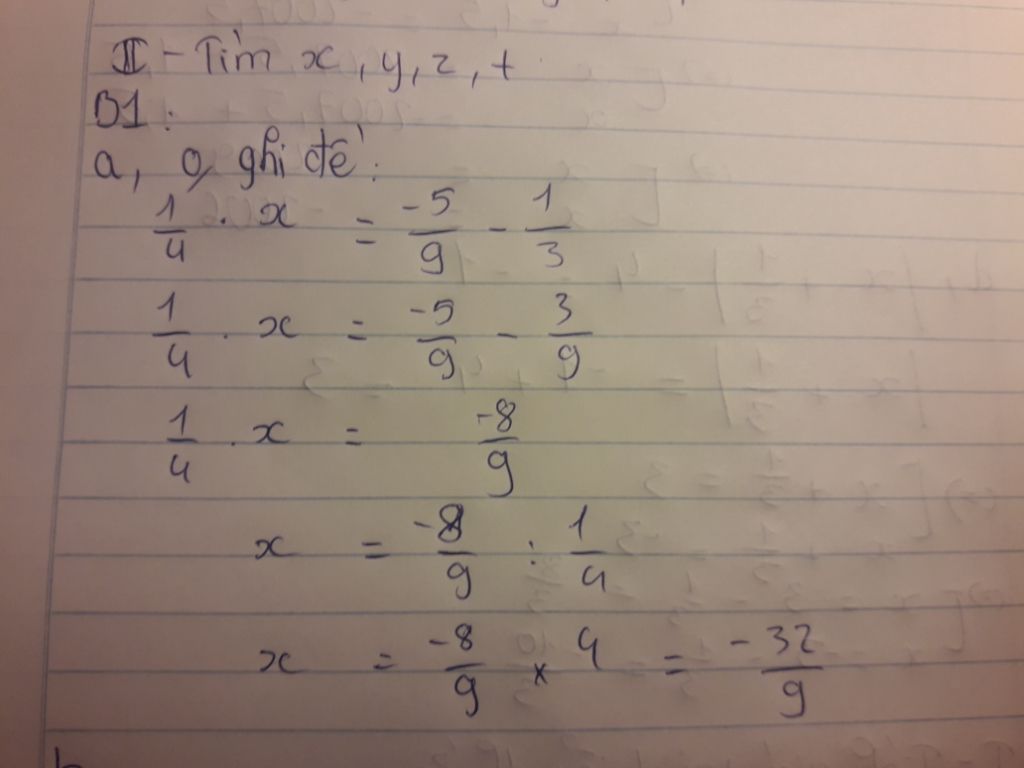 II - Tìm x, y, z, t
B1:
a, o, ghi đề:
1/4 . x = -5/9 - 1/3
1/4 . x = -5/9 - 3/9
1/4 . x = -8/9
x = -8/9 : 1/4
x = -8/9 × 4 = -32/9